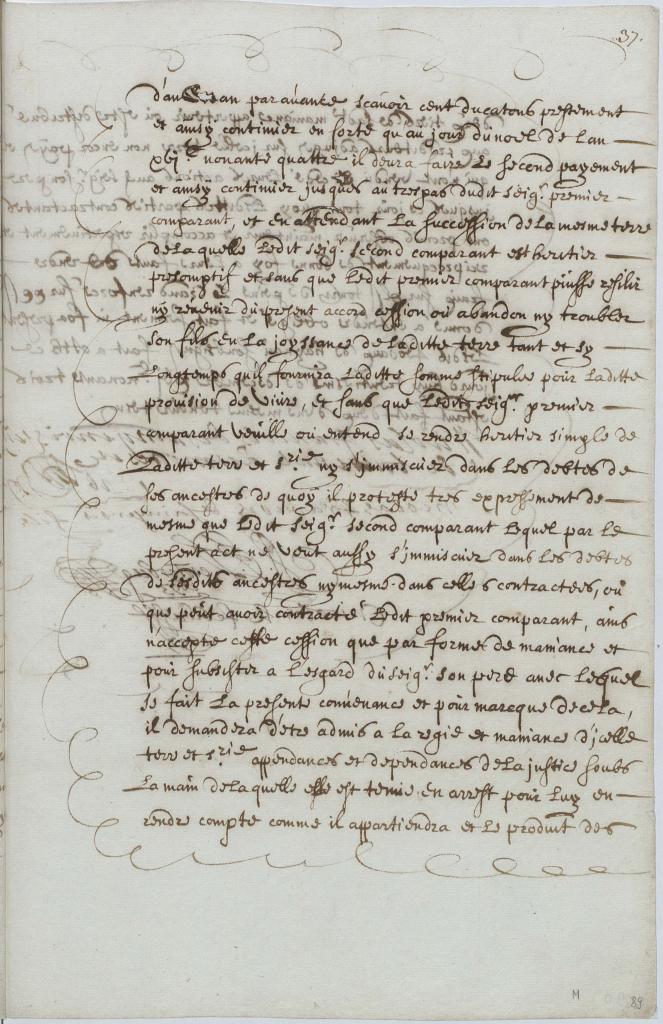 37.
d'an en an par avance scavoir cent ducatons prestement
et ainsy continuer en sorte qu'au jour du noel de l'an
xvjc nonante quattre il devra faire le second payement
et ainsy continuer jusques au trespas dudit seigr premier
comparant, et en attendant la succession de la mesme terre
de laquelle ledit seigr second comparant est heritier
presomptif et sans que ledit premier comparant puisse resilir
ny revenir du present accord cession ou abandon ny troubler
son fils en la joyssance de laditte terre tant et sy
longtemps qu'il fournira laditte somme stipulée pour laditte
provision de vivre, et sans que ledit seigr premier
comparant veuille ou entend se rendre heritier simple de
laditte terre et srie ny s'immiscuer dans les debtes de
ses ancestres de quoy il proteste tres expressement de
mesme que ledit seigr second comparant lequel par le
present act ne veut aussy s'immiscuer dans les debtes
de sesdits ancestres ny mesme dans celles contractées, ou
que peut avoir contracté ledit premier comparant, ains
n'accepte cesse cession que par forme de maniance et
pour subsister a l'esgard du seigr son pere avec lequel
se fait la presente convenance et pour marcque de cela,
il demandera d'etre admis a la regie et maniance d'jcelle
terre et srie appendances et dependances de la justice soubs
la main de laquelle elle est tenue en arrest pour luy en
rendre compte comme il appartiendra et le produit des
M
89